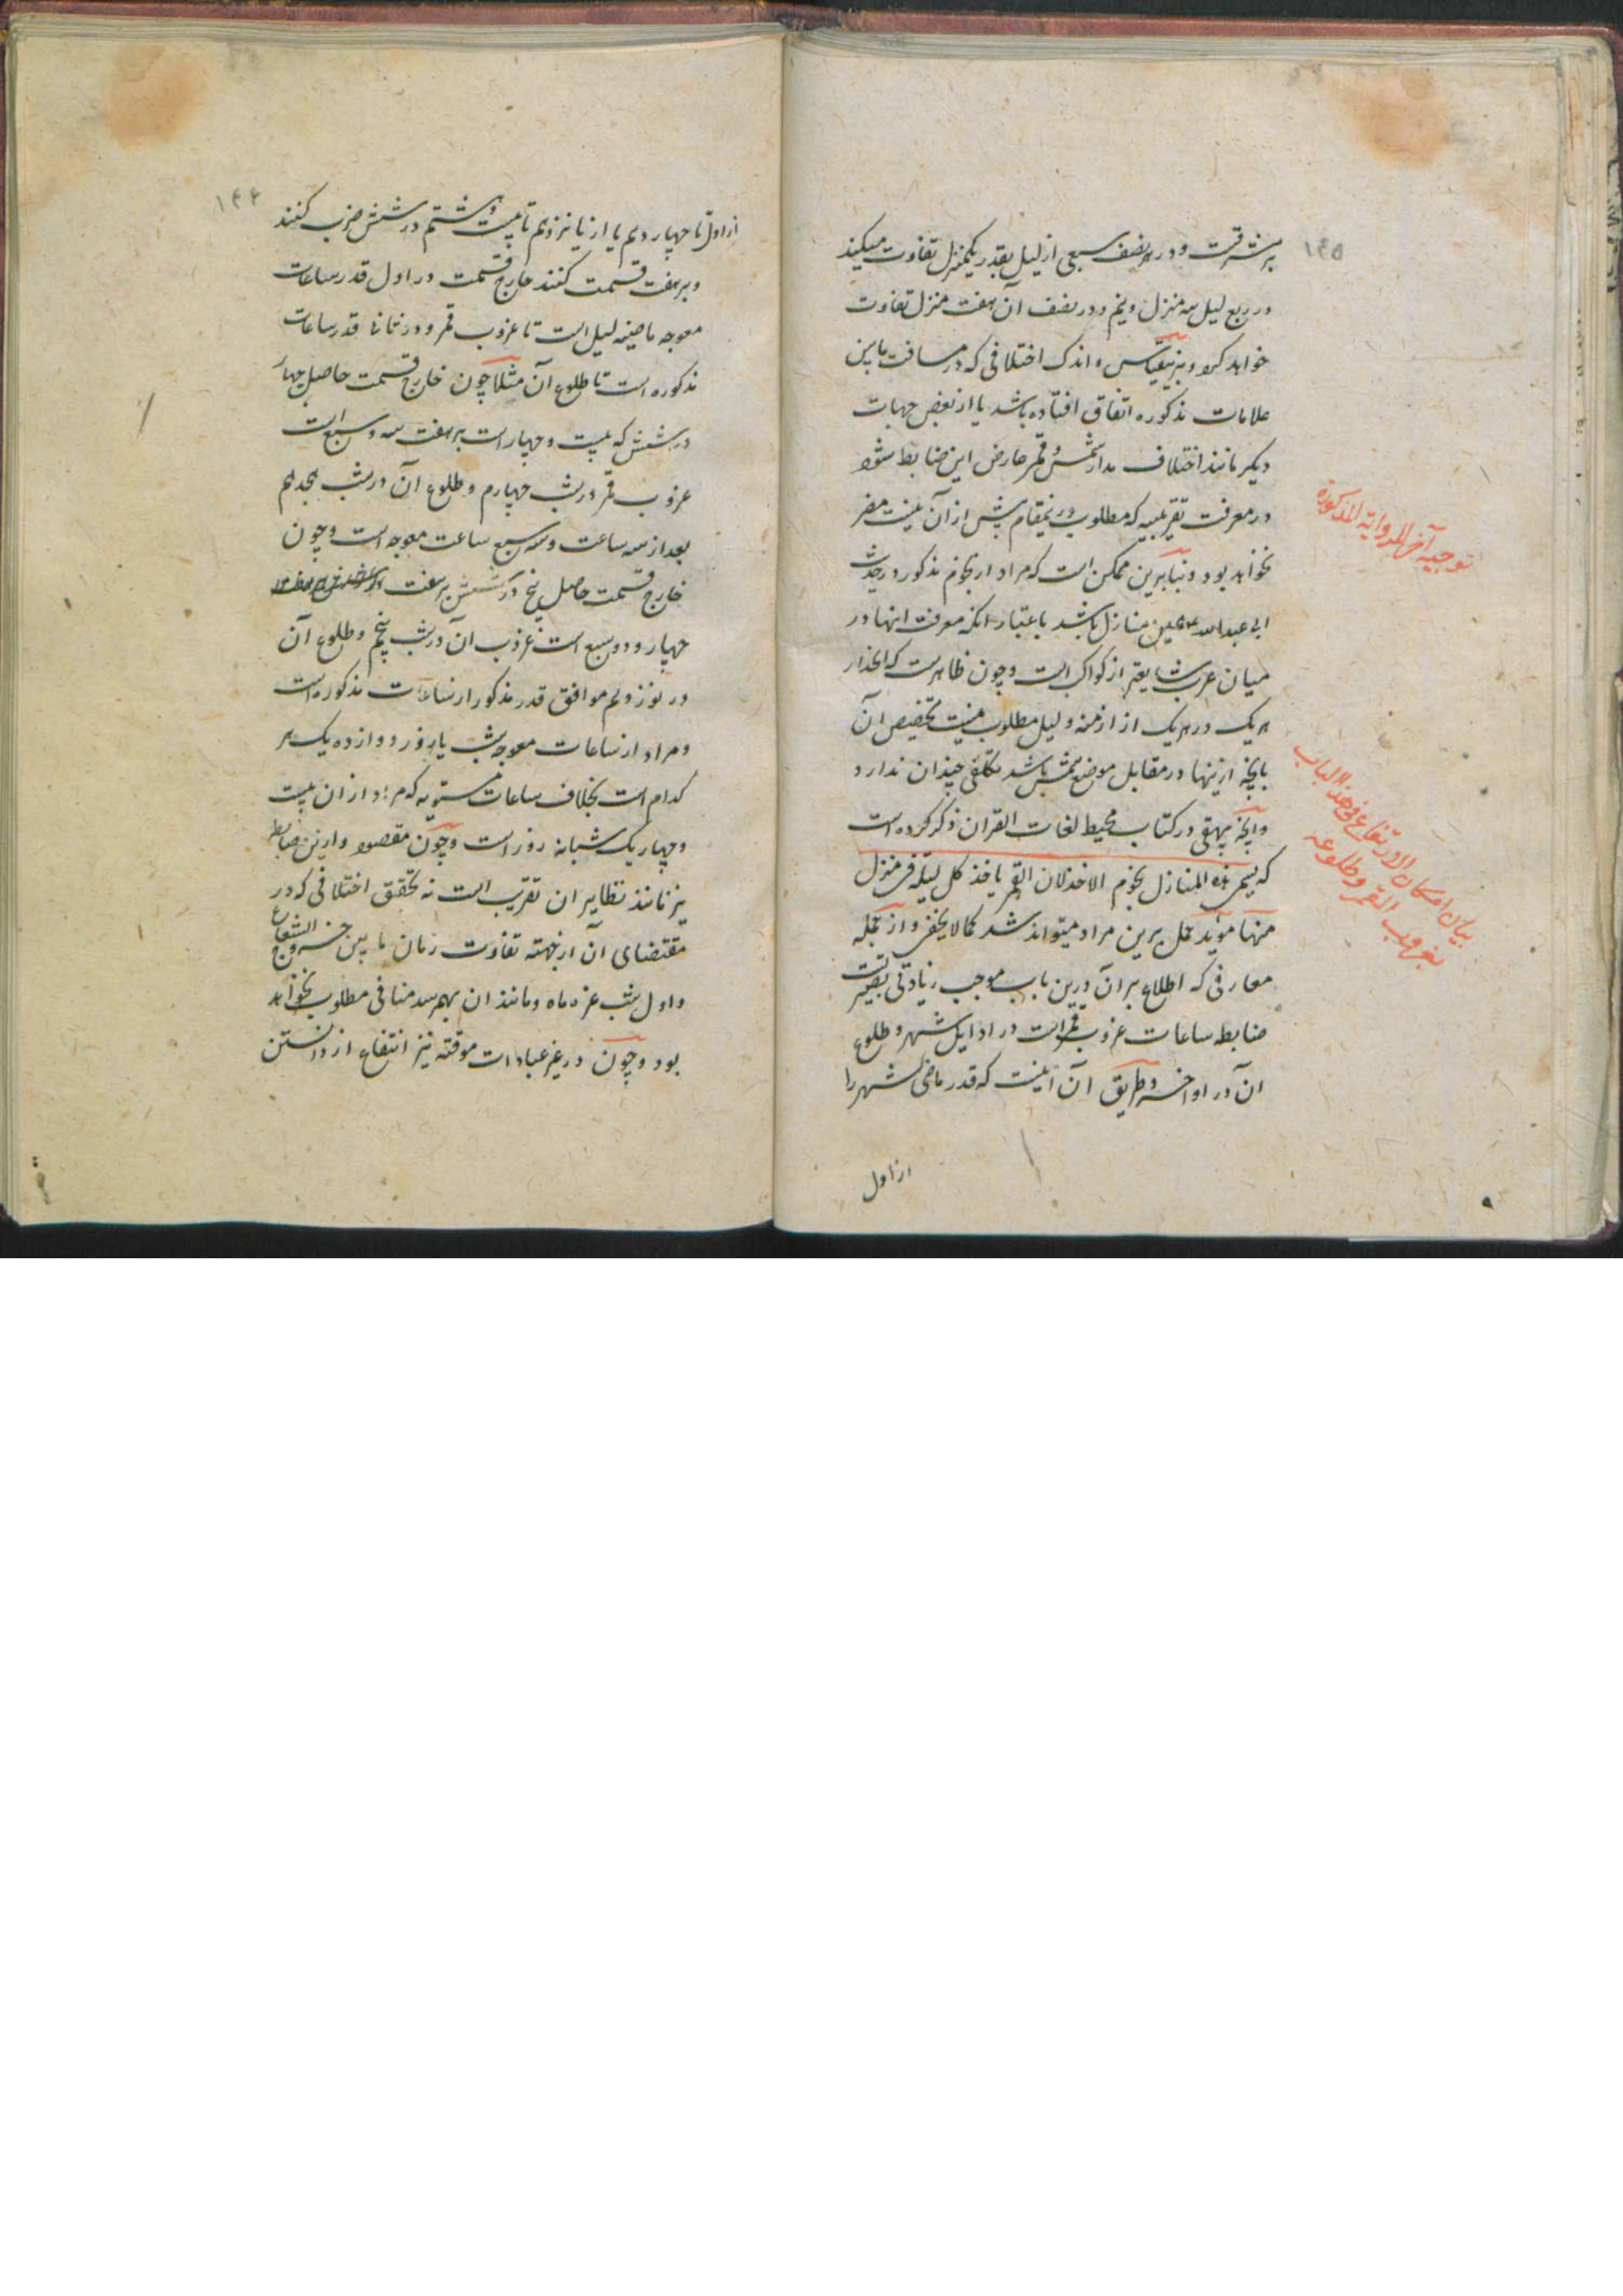 ۱۴۵
بر شرقست و در هر نصف سبعی از لیل بقدر یکمنزل تفاوت میکند
در ربع لیل سه منزل و نیم و در نصف آن هفت منزل تفاوت
خواهد کرد و برینقیاس و اندک اختلافی که در مسافت مابین
علامات مذکوره اتفاق افتاده باشد یا از بعض جهات
دیگر مانند اختلاف مدار شمس و قمر عارض این ضابط شود
در معرفت تقریبیه که مطلوب درینمقام بیش از آن نیست مضر
نخواهد بود و بنابرین ممکن است که مراد از نجوم مذکور در حدیث
ابی عبدالله ع همین منازل باشد باعتبار انکه معرفت انها در
میان عرب شایعتر از کواکب است و چون ظاهرست که انحدار
هر یک در هر یک از ازمنه و لیل مطلوب نیست تخصیص آن
بانچه ازینها در مقابل موضع شمس باشد تکلفی چندان ندارد
و آنچه بیهقی در کتاب محیط لغات القران ذکر کرده است
که یسمی هذه المنازل نجوم الاخذ لان القمر یاخذ کل لیلة فی منزل
منها موید حمل برین مراد میتواند شد کما لا یخفی و از جمله
معارفی که اطلاع بر آن درین باب موجب زیادتی بصیرتست
ضابطه ساعات غروب قمر است در اوایل شهر و طلوع
ان در اواخر و طریق آن اینست که قدر ماضی شهر را
از اول
توجیه آخر للروایة المذکورة
بیان امکان الارتفاع فی هذا الباب
بغروب القمر و طلوعه
۱۴۴
از اول تا چهاردهم یا از پانزدهم تا بیست و هشتم در شش ضرب کنند
و بر هفت قسمت کنند خارج قسمت در اول قدر ساعات
معوجه ماضیه لیل است تا غروب قمر و در ثانی قدر ساعات
مذکوره است تا طلوع آن مثلا چون خارج قسمت حاصل چهار
در شش که بیست و چهار است بر هفت سه و سه سبع است
غروب قمر در شب چهارم و طلوع آن در شب هجدهم
بعد از سه ساعت و سه سبع ساعت معوجه است و چون
خارج قسمت حاصل پنج در شش بر هفت
چهار و دو سبع است غروب ان در شب پنجم و طلوع آن
در نوزدهم موافق قدر مذکور از ساعات مذکوره است
و مراد از ساعات معوجه شب یا روز دوازده یک هر
کدام است بخلاف ساعات مستویه که مراد از ان بیست
و چهار یک شبانه روز است و چون مقصود ازین ضابطه
نیز مانند نظایر ان تقریب است نه تحقیق اختلافی که در
مقتضای آن از جهته تفاوت زمان ما بین خروج الشعاع
و اول شب غره ماه و مانند ان بهم رسد منافی مطلوب نخواهد
بود و چون در غیر عبادات موقته نیز انتفاع از دانستن